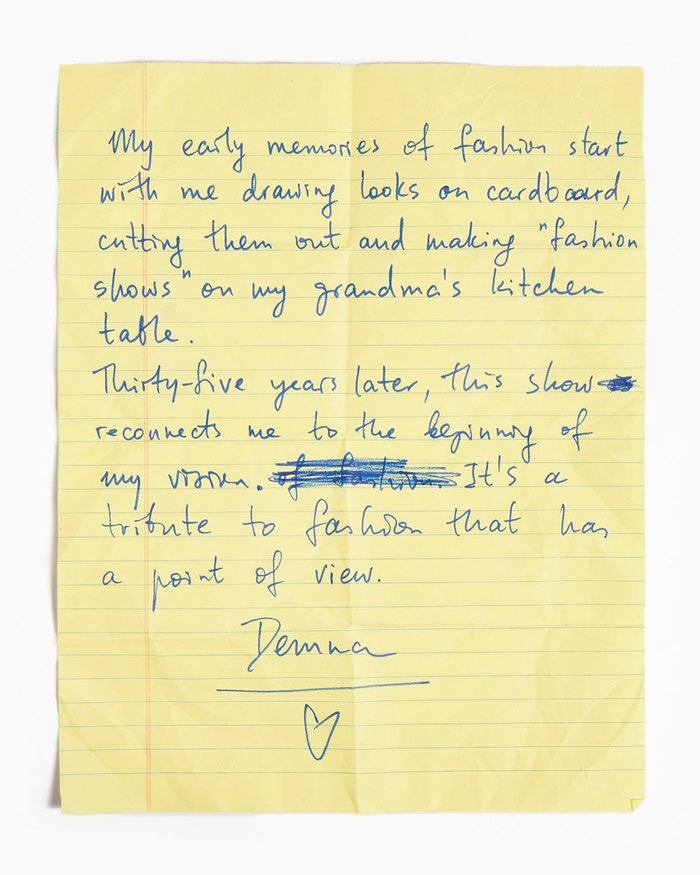 My early memories of fashion start
with me drawing looks on cardboard,
cutting them out and making "fashion
shows" on my grandma's kitchen
table.
Thirty-five years later, this show
reconnects me to the beginning of
my vision. of fashion. It's a
tribute to fashion that has
a point of view.
Demna